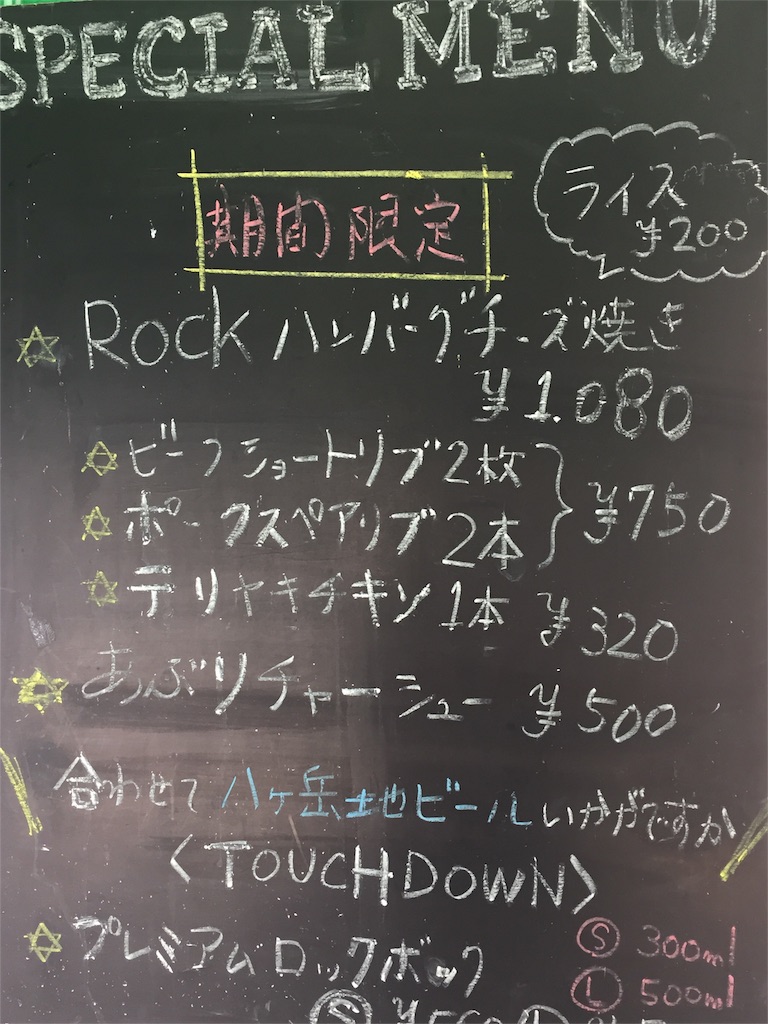 SPECIAL MENU
期間限定
ライス
¥200
Rockハンバーグチーズ焼き
¥1.080
ビーフショートリブ2枚
ポークスペアリブ2本
¥750
テリヤキチキン1本 ¥320
あぶりチャーシュー ¥500
合わせて八ヶ岳地ビールいかがですか
<TOUCHDOWN>
プレミアムロックボック
Ⓢ 300ml
Ⓛ 500ml
Ⓢ